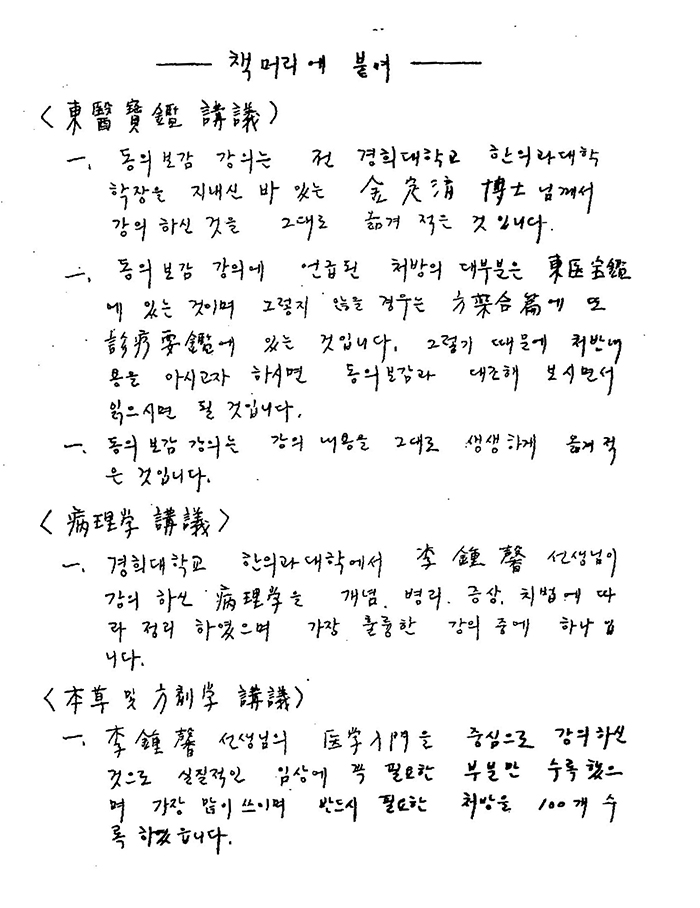 책머리에 붙여
〈東醫寶鑑 講議〉
一. 동의보감 강의는 전 경희대학교 한의과대학
학장을 지내신 바 있는 金定濟 博士님께서
강의 하신 것을 그대로 옮겨 적은 것 입니다.
一. 동의보감 강의에 언급된 처방의 대부분은 東医宝鑑
에 있는 것이며 그렇지 않을 경우는 方藥合篇에 또
診療要鑑에 있는 것입니다. 그렇기 때문에 처방내
용을 아시고자 하시면 동의보감과 대조해 보시면서
읽으시면 될 것입니다.
一. 동의보감 강의는 강의 내용을 그대로 생생하게 옮겨 적
은 것입니다.
〈病理学 講議〉
一. 경희대학교 한의과대학에서 李鍾馨 선생님이
강의 하신 病理学을 개념. 병리. 증상. 치법에 따
라 정리 하였으며 가장 훌륭한 강의 중에 하나 입
니다.
〈本草 및 方剤学 講議〉
一. 李鍾馨 선생님의 医学入門을 중심으로 강의하신
것으로 실질적인 임상에 꼭 필요한 부분만 수록했으
며 가장 많이 쓰이며 반드시 필요한 처방을 100개 수
록 하였읍니다.